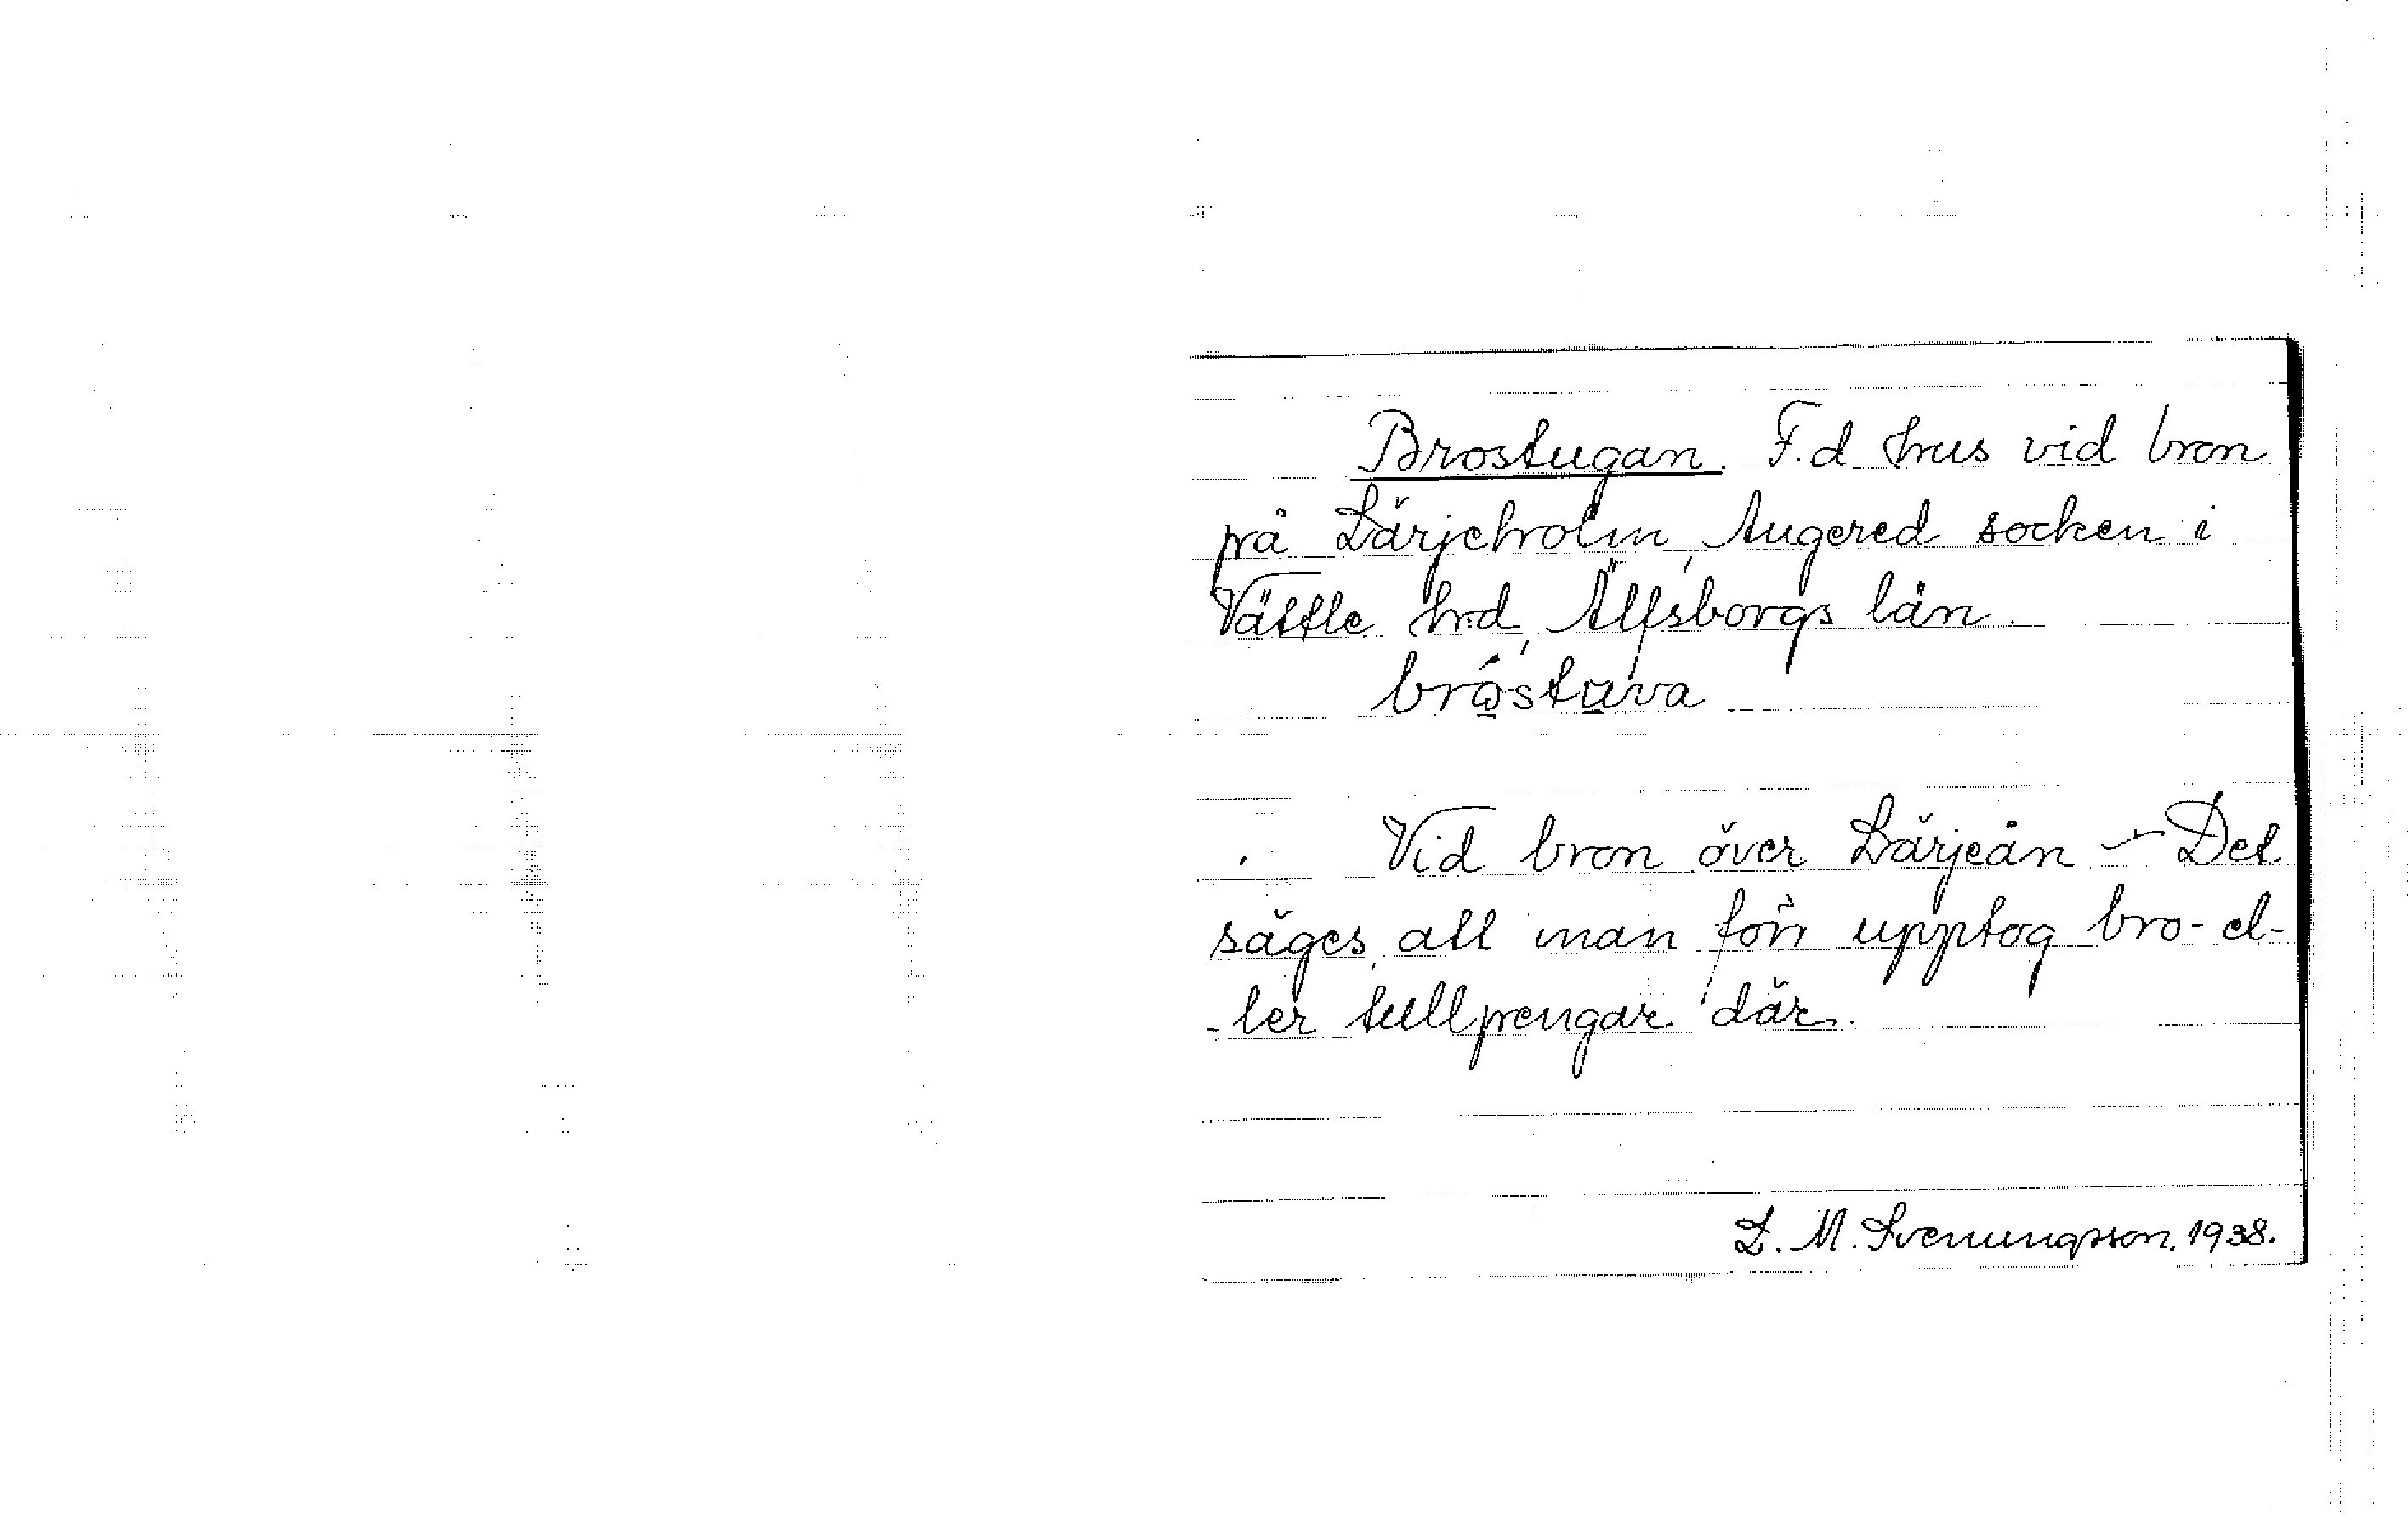 Brostugan. F.d. hus vid bron
på Lärjeholm, Angered socken i
Vättle hd, Älfsborgs län.
bróstuva
Vid bron över Lärjeån – Det
säges, att man förr upptog bro- el-
-ler tullpengar där.
L. M. Svenungsson. 1938.